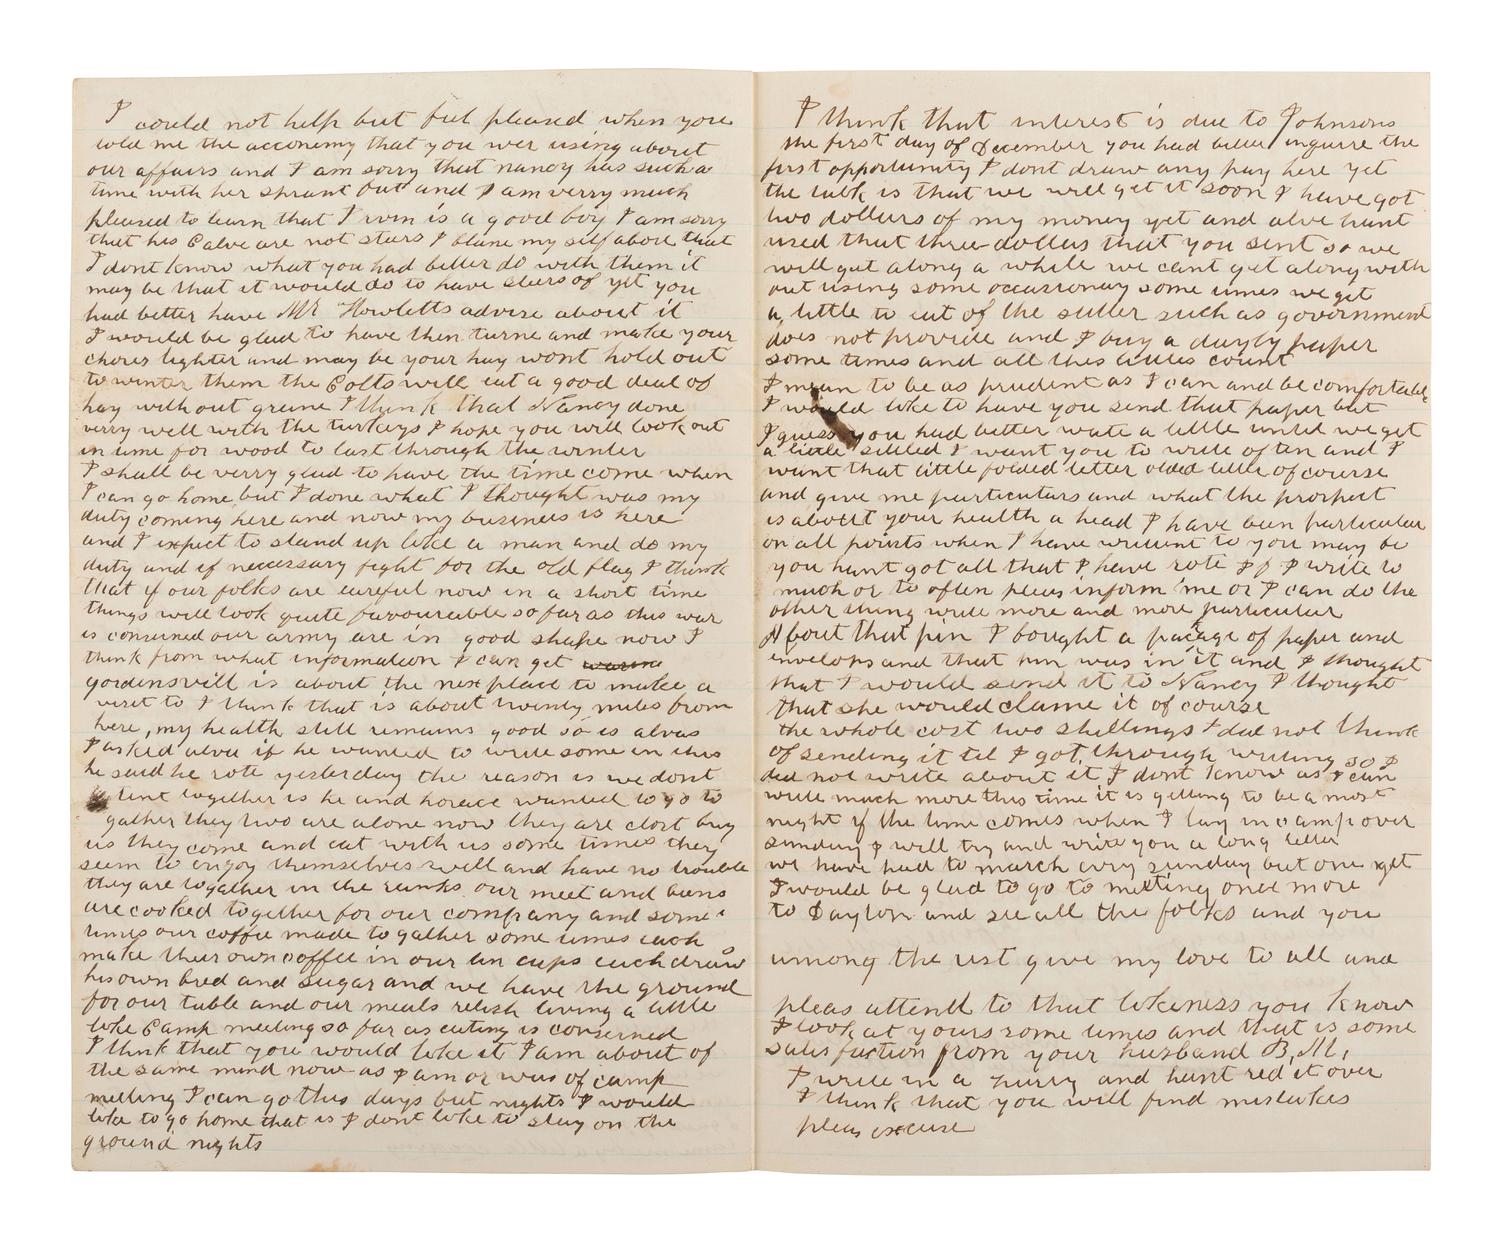 I could not help but feel pleased when you
told me the acconemy that you wer using about
our affairs and I am sorry that nancy has such a
time with her sprant out and I am verry much
pleased to learn that Irwin is a good boy I am sorry
that his Calve are not stears I blame my self about that
I dont know what you had better do with them it
may be that it would do to have steers of yet you
had better have Mr Howletts advise about it
I would be glad to have then turne and make your
chores lighter and may be your hay wont hold out
to winter them the Colts will eat a good deal of
hay without greine I think that Nancy done
verry well with the turkeys I hope you will look out
in time for wood to last through the winter
I shall be verry glad to have the time come when
I can go home but I done what I thought was my
duty coming here and now my business is here
and I expect to stand up like a man and do my
duty and if necessary fight for the old flag I think
that if our folks are careful now in a short time
things will look quite favourable so far as this war
is conserned our army are in good shape now I
think from what information I can get
gordensvill is about the nex place to make a
visit to I think that is about twenty miles from
here, my health still remains good so is alvas
I asked alva if he wanted to write some in this
he said he rote yesterday the reason is we dont
tent together is he and horace wanted to go to
gather they two are alone now they are clost buy
us they come and eat with us some times they
seem to enjoy themselves well and have no trouble
they are togather in the ranks our meet and beens
are cooked together for our company and some
times our coffee made to gather some times each
make their own coffee in our tin cups each draw
his own bred and sugar and we have the ground
for our table and our meals relish living a little
like Camp meeting so far as eating is conserned
I think that you would like it I am about of
the same mind now as I am or was of camp
meeting I can go this days but nights I would
like to go home that is I dont like to stay on the
ground nights
I think that interest is due to Johnsons
the first day of December you had better inquire the
first opportunity I dont draw any pay here yet
the talk is that we will get it soon I have got
two dollars of my money yet and alve hant
used that three dollars that you sent so we
will get along a while we cant get along with
out using some occassionay some times we get
a little to eat of the sutler such as government
does not provide and I buy a dayly paper
some times and all thes littles count
I mean to be as prudent as I can and be comfortable
I would like to have you send that paper but
I guess you had better wate a little until we get
a little settled I want you to write often and I
want that little folded letter of course
and give me particulars and what the prospect
is about your health a head I have been particular
on all points when I have writent to you may be
you hant got all that I have rote If I write to
much or to often pleas inform me or I can do the
other thing write more and more particular
About that pin I bought a pacage of paper and
envelops and that pin was in it and I thought
that I would send it to Nancy I thought
that she would clame it of course
the whole cost two shellings I did not think
of sending it til I got through writing so I
did not write about it I dont know as I can
write much more this time it is getting to be a most
night if the time comes when I lay in camp over
sunday I will try and write you a long letter
we have had to march evry sunday but one yet
I would be glad to go to meeting once more
to Dayton and see all the folks and you
among the rest give my love to all and
pleas attend to that likeness you know
I look at yours some times and that is some
satisfaction from your husband B, M,
I write in a hurry and hant red it over
I think that you will find mistakes
pleas excuse